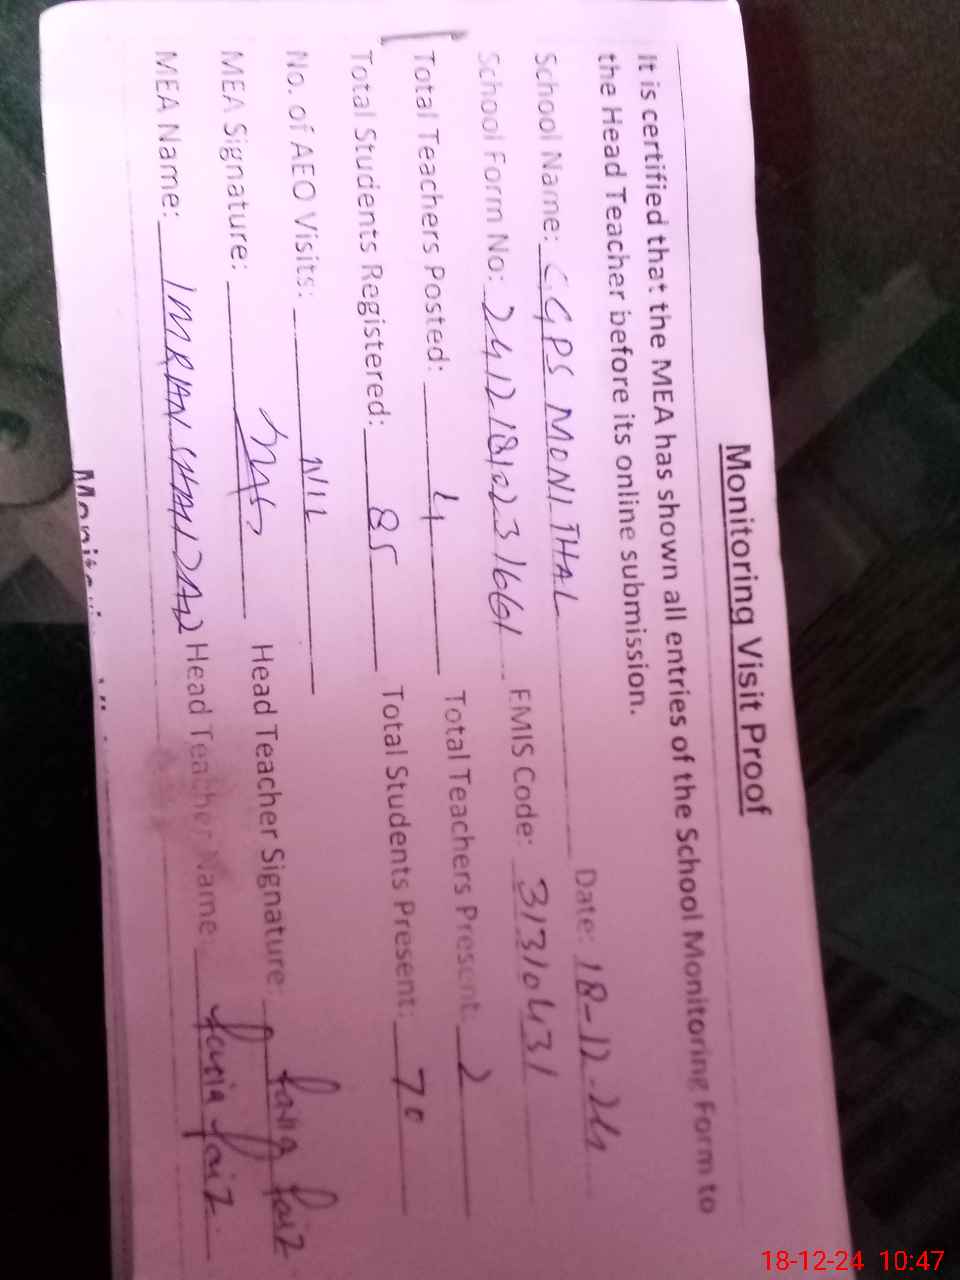 Monitoring Visit Proof
It is certified that the MEA has shown all entries of the School Monitoring Form to
the Head Teacher before its online submission.
School Name: GGPS MONI THAL Date: 18-12-24
School Form No: 24121810231661 EMIS Code: 31310431
Total Teachers Posted: 4 Total Teachers Present: 2
Total Students Registered: 85 Total Students Present: 70
No. of AEO Visits: NIL
MEA Signature: Head Teacher Signature: faiz
MEA Name: IMRAN SHAHZAD Head Teacher Name: faiz
18-12-24 10:47